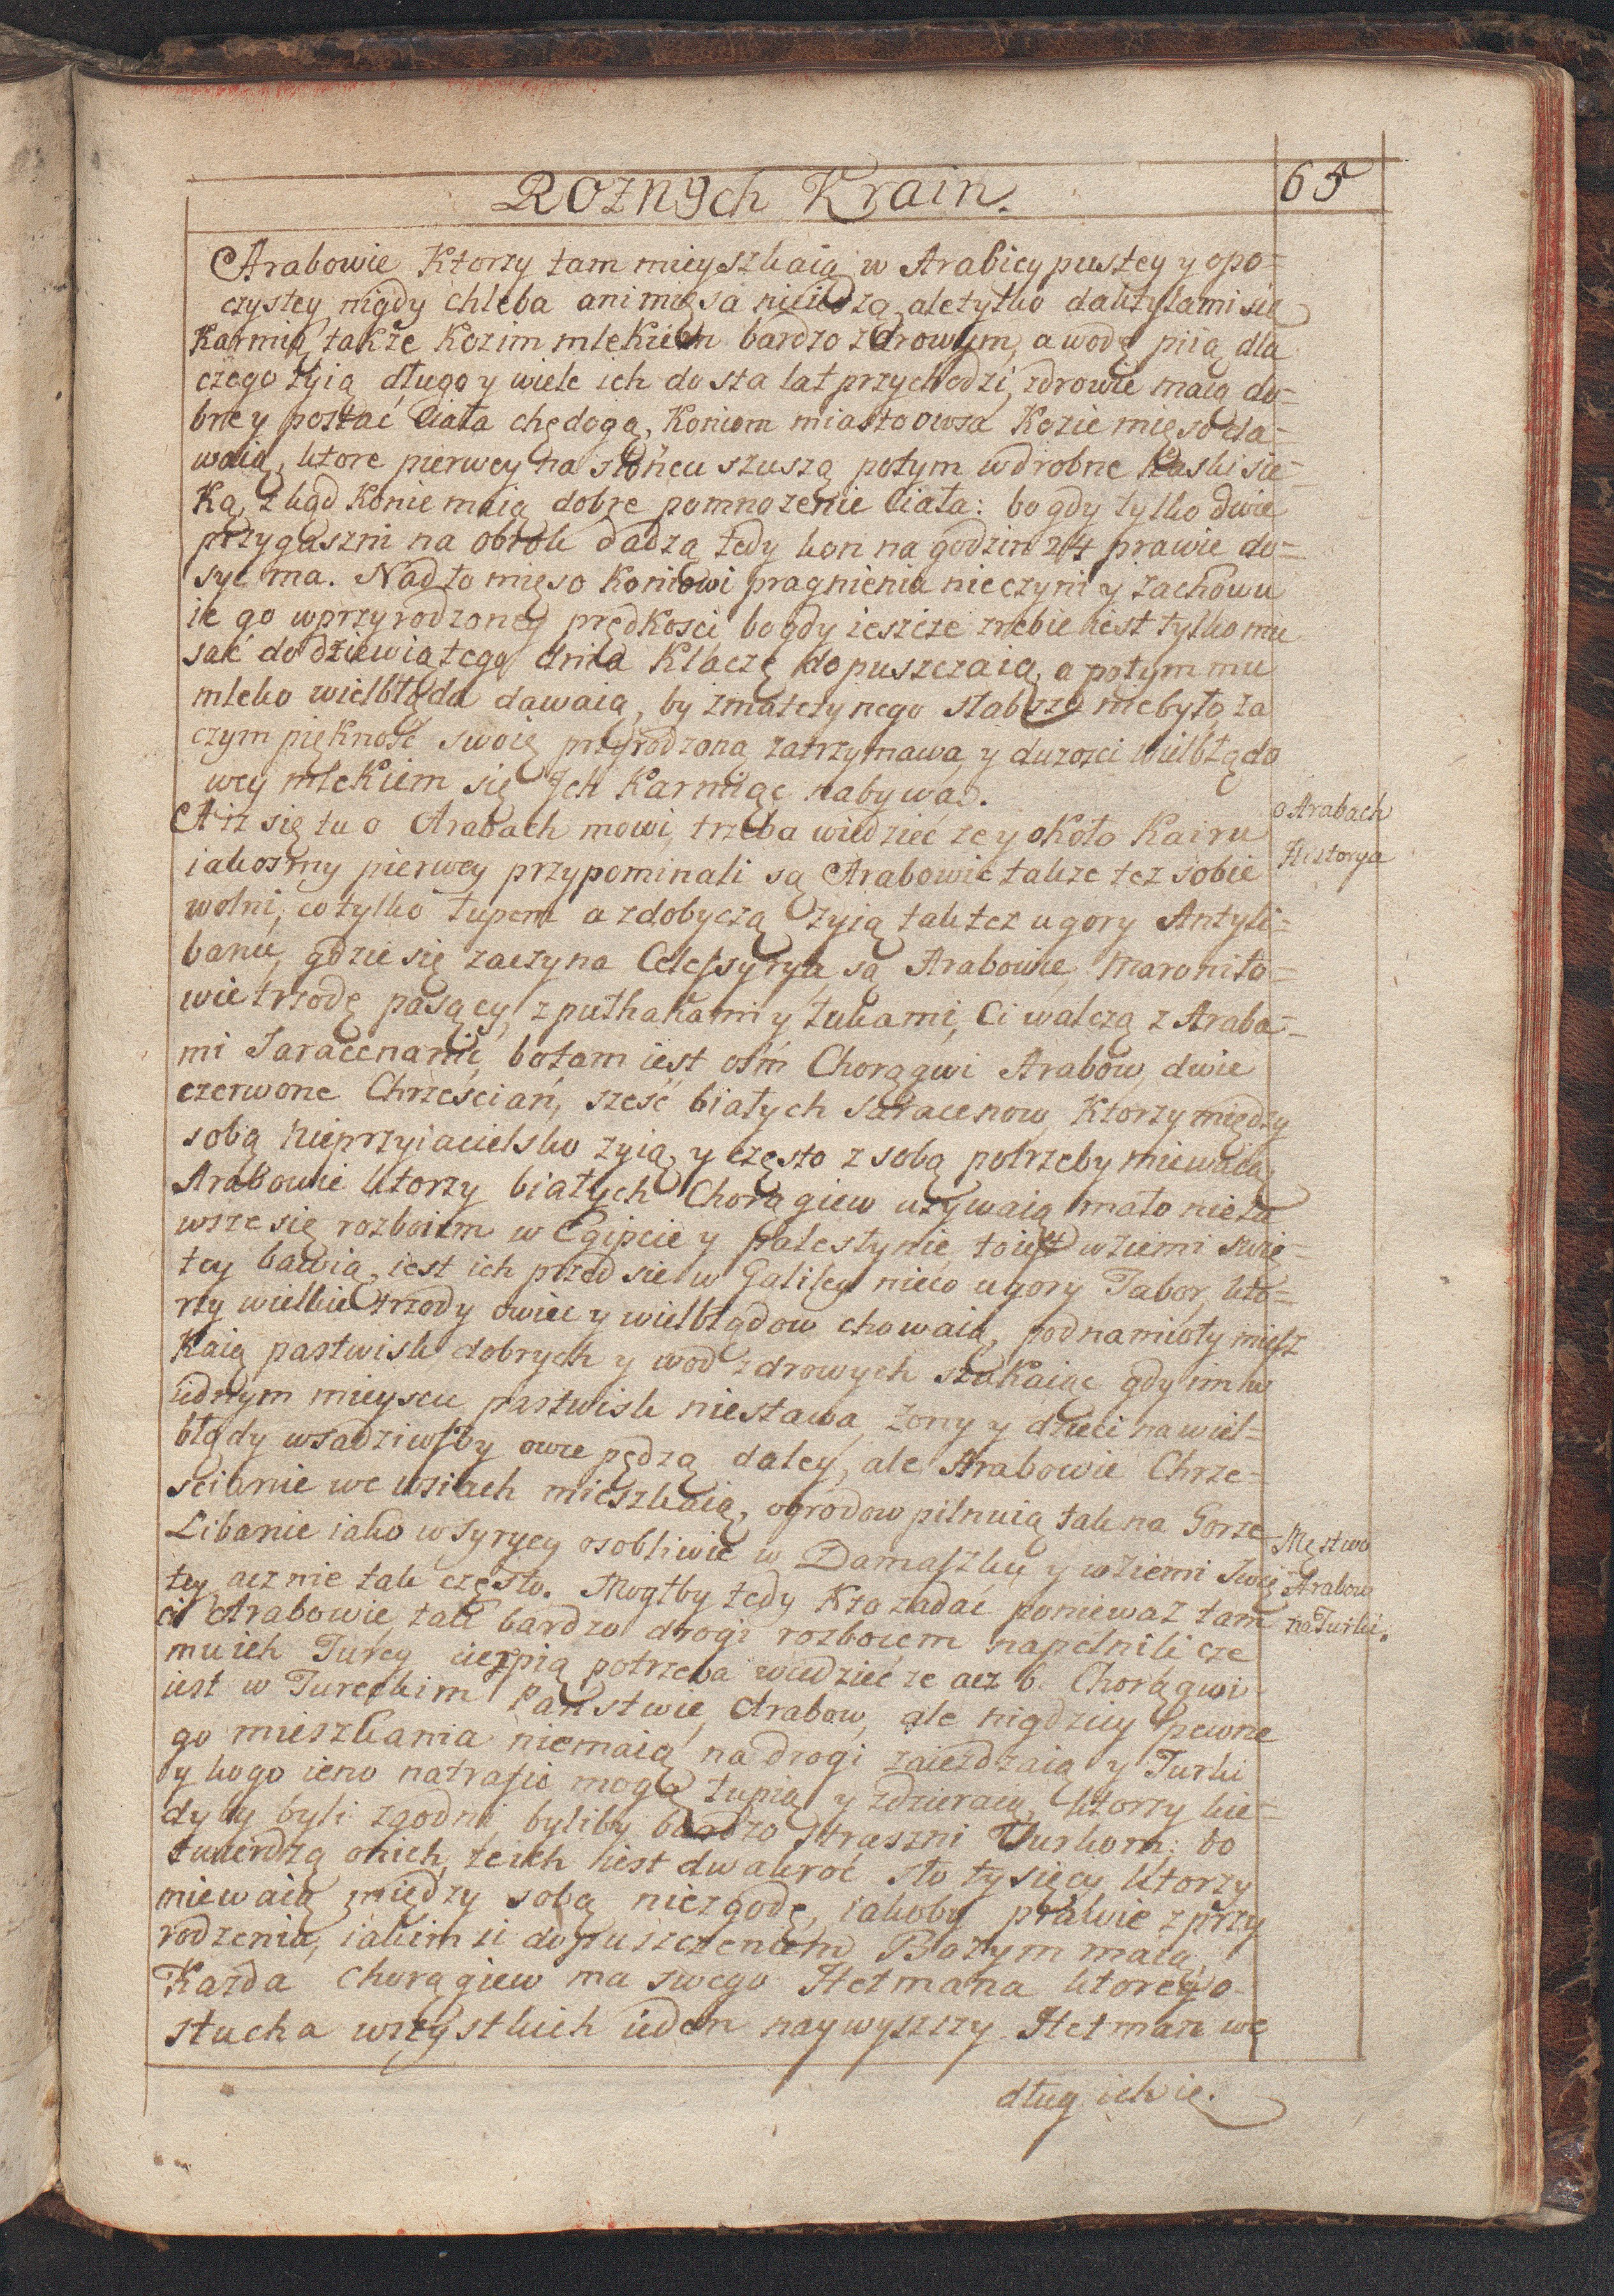 Rożnych Krain.
65
Arabowie Ktorzy tam mieyszkaią w Arabiey pustey y opo=
czystey nigdy chleba ani mięsa nieiedzą ale tylko daktylami się
Karmią, także Kozim mlekiem bardzo zdrowym, a wodę piią dla
czego żyią długo y wiele ich do sta lat przychodzi, zdrowie maią do=
bre y postać Ciała chędogą, Koniom miasto owsa Kozie mięso da=
waią, ktore pierwey na słońcu szuszą potym w drobne kaski sie=
Ką, z kąd Konie maią dobre pomnożenie Ciała: bo gdy tylko dwie
przygaszni na obrok dadzą tedy kon na godzin 24 prawie do=
syc ma. Nad to mięso Koniowi pragnienia nie czyni y zachowu
ie go w przyrodzoney prędkosci bo gdy ieszcze zrebie iest tylko mu
sać do dziewiątego dnia Klaczę dopuszczaią, a potym mu
mleko wielbłąda dawaią, by z matczynego słabsze niebyło, za
czym piękność swoię przyrodzoną zatrzymawa y duzosci wielbłądo
wey mlekiem się Jch Karmiąc nabywa.
Aiż się tu o Arabach mowi, trzeba wiedzieć ze y około Kairu
o Arabach
Historya
iakosmy pierwey przypominali są Arabowie takze tez sobie
wolni, co tylko łupem a zdobyczą żyią tak tez u gory Antyli=
banu, gdzie się zaczyna Celesyrya, są Arabowie, Maronito=
wie trzodę pasący, z puthakami y łukami, Ci walczą z Araba=
mi Saracenami, bo tam iest ośm Chorągwi Arabow, dwie
czerwone Chrześciań, sześć białych Saracenow, Ktorzy między
sobą nieprzyiacielsko zyią, y często z sobą potrzeby miewaią
Arabowie ktorzy białych Chorągiew uzywaią mało nie za
wsze się rozboiem w Egipcie y Palestynie to iest w ziemi Swię=
tey bawią, iest ich przed sie w Galiley nieco u gory Tabor, kto=
rzy wielkie trzody owiec y wielbłądow chowaią, pod namioty miesz
Kaią pastwisk dobrych y wod zdrowych szukaiąc gdy im w
iednym mieyscu pastwisk niestawa, zony y dzieci na wiel=
błądy wsadziwszy owce pędzą daley, ale Arabowie Chrze=
scianie we wsiach mieszkaią, ogrodow pilnuią tak na Gorze
Libanie iako w Syryey osobliwie w Damaszku y w ziemi Swię
Męstwo
Arabow
na Turki.
tey acz nie tak często. Mogłby tedy Kto zadać poniewaz tam
ci Arabowie tak bardzo drogi rozboiem napełnili cze
mu ich Turcy cierpią potrzeba wiedzieć ze acz 6. Chorągwi
iest w Tureckim Państwie, Arabow, ale nigdziey pewne
go mieszkania niemaią na drogi zaiezdzaią y Turki
y kogo ieno natrafic mogą łupią y zdzieraią, ktorzy kie=
dyby byli zgodni, byliby bardzo straszni Turkom: bo
twierdzą onich, ze ich iest dwakroć sto tysięcy ktorzy
miewaią między sobą niezgodę, iakoby prawie z przy
rodzenia, iakimsi dopuszczeniem Bozym maią,
Kazda Chorągiew ma swego Hetmana ktorego
słucha wszystkich ieden naywyższy Hetman we
dług ich ie.